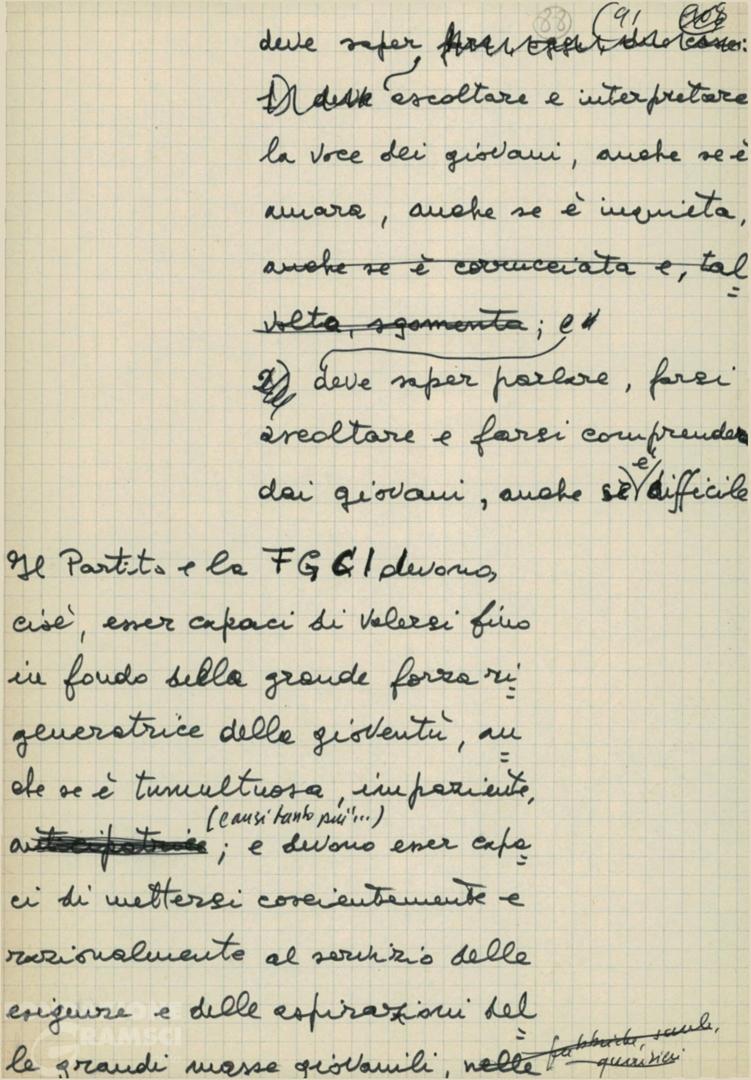 (88) (91
deve saper
1) deve ascoltare e interpretare
la voce dei giovani, anche se è
amara, anche se è inquieta,
anche se è corrucciata e, tal
volta, sgomenta; e
2) deve saper parlare, farsi
ascoltare e farsi comprendere
dai giovani, anche se è difficile
Il Partito e la FGCI devono,
cioè, esser capaci di valersi fino
in fondo della grande forza ri
generatrice della gioventù, an
che se è tumultuosa, impaziente,
(e anzi tanto più"...)
anticipatrice; e devono esser capa
ci di mettersi coscientemente e
razionalmente al servizio delle
esigenze e delle aspirazioni del
le grandi masse giovanili, nelle fabbriche, scuole,
quartieri
GRAMSCI